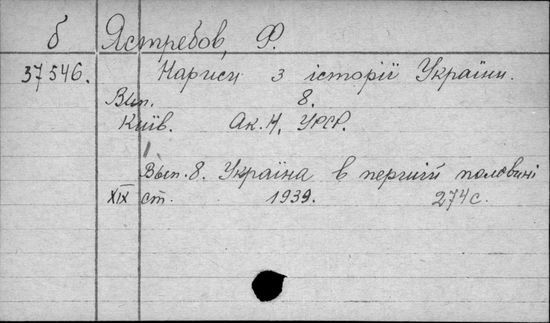 б Ястребов, Ф.
37546. Нариси з історії України.
Вып. 8.
Київ. Ак. Н. УРСР.
Вып. 8. Україна в першій половині
XIX ст. 1939. 274 с.